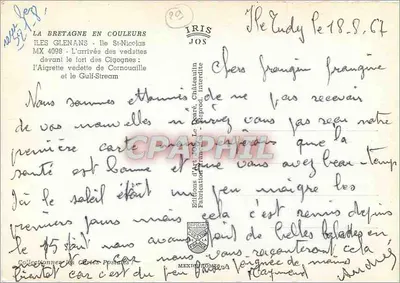 LA BRETAGNE EN COULEURS
ILES GLENANS - Ile St-Nicolas
MX 4098 - L'arrivée des vedettes
devant le fort des Cigognes :
l'Aigrette vedette de Cornouaille
et le Gulf-Stream
IRIS
JOS
Ile Tudy le 18.8.67
Chers frangin frangine
Nous sommes étonnés de ne pas recevoir
de vos nouvelles n'auriez vous pas reçu notre
première carte nous espérons que la
santé est bonne et que vous avez beau temps
Ici le soleil était un peu maigre les
premiers jours mais cela s'est remis depuis
le 15 août nous avons fait de belles balades en
car nous vous raconterons cela
bientôt car c'est du peu poignée de mains
Raymond André
Editions d'Art Jos Le Doaré, Châteaulin
Reprod. interdite
CPAPHIL
MEXICHROME
Collectionnez les cartes postales